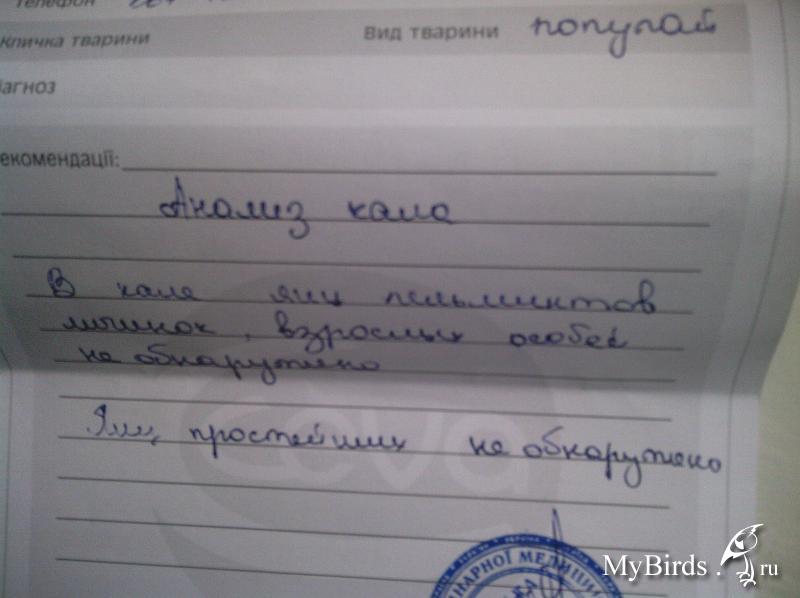 Телефон
Кличка тварини
Вид тварини попугай
іагноз
екомендації:
Анализ кала
В кале яиц гельминтов
личинок, взрослых особей
не обнаружено
Яиц, простейших не обнаружено
ceva
ІНАРНОЇ МЕДИЦИН
MyBirds.ru